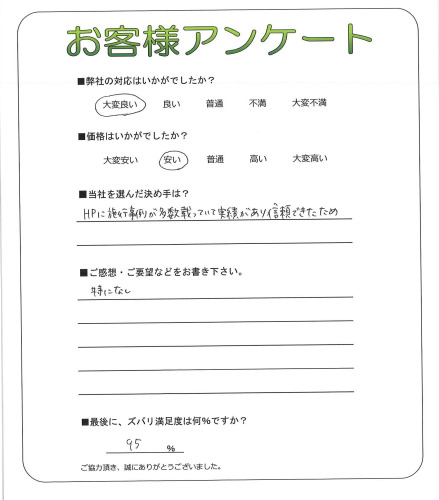 お客様アンケート
■弊社の対応はいかがでしたか？
大変良い 良い 普通 不満 大変不満
■価格はいかがでしたか？
大変安い 安い 普通 高い 大変高い
■当社を選んだ決め手は？
HPに施行事例が多数載っていて実績があり信頼できたため
■ご感想・ご要望などをお書き下さい。
特になし
■最後に、ズバリ満足度は何％ですか？
95 ％
ご協力頂き、誠にありがとうございました。